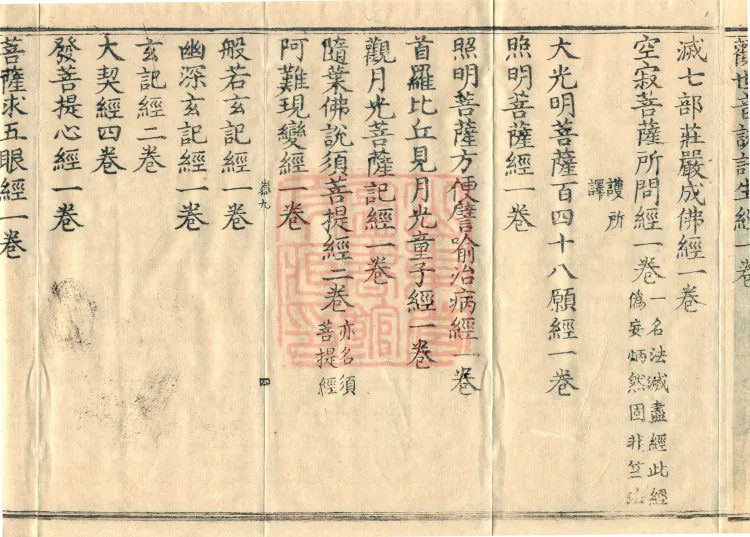 觀世音生經一卷
滅七部莊嚴成佛經一卷
空寂菩薩所問經一卷
一名法滅盡經此經
偽妄炳然固非竺法
護所
譯
大光明菩薩百四十八願經一卷
照明菩薩經一卷
照明菩薩方便譬喻治病經一卷
首羅比丘見月光童子經一卷
觀月光菩薩記經一卷
隨葉佛說須菩提經二卷
亦名須
菩提經
阿難現變經一卷
九 四
般若玄記經一卷
幽深玄記經一卷
玄記經二卷
大契經四卷
發菩提心經一卷
菩薩求五眼經一卷